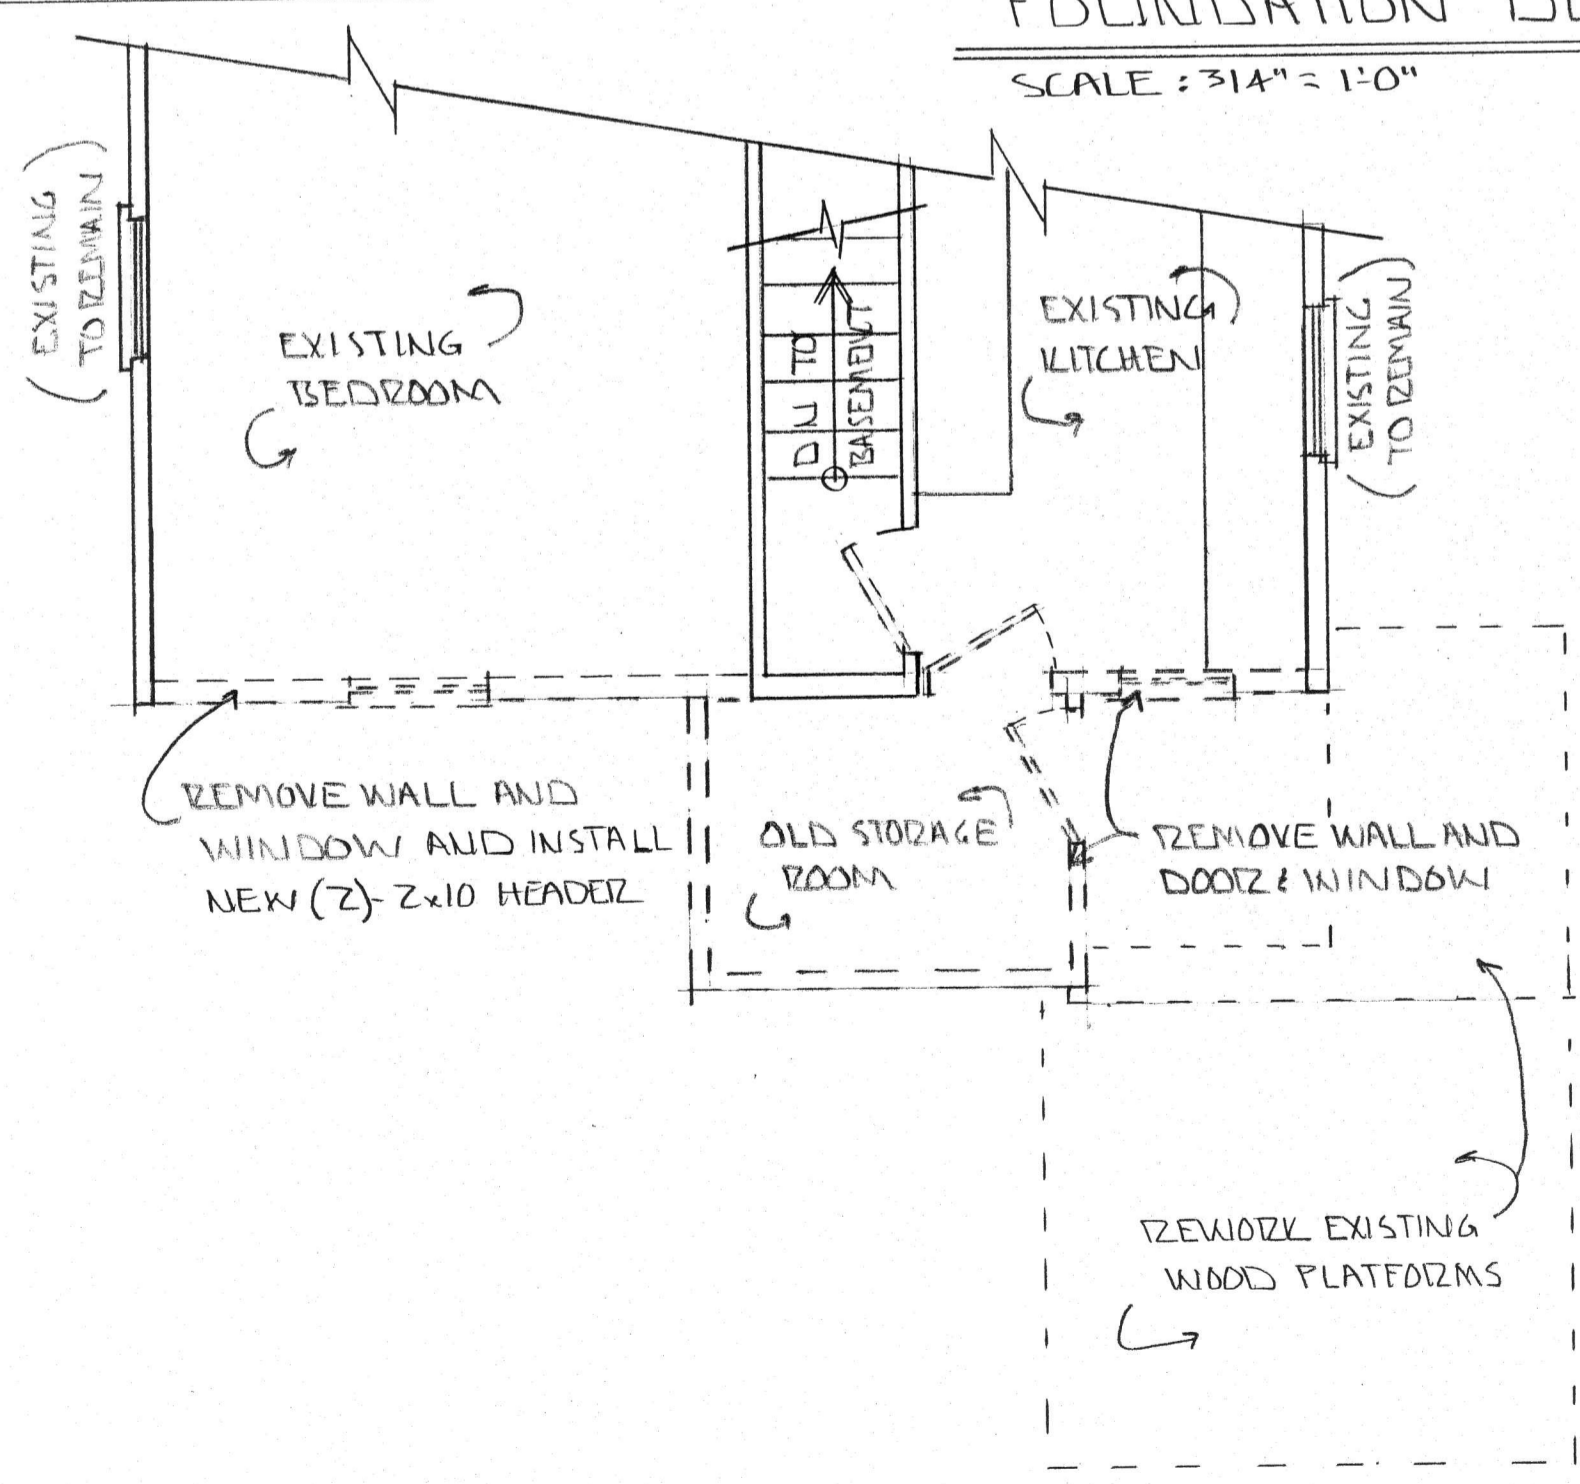 FOUNDATION
SCALE : 3/4" = 1'-0"
(EXISTING
TO REMAIN)
EXISTING
BEDROOM
DN TO
BASEMENT
EXISTING
KITCHEN
(EXISTING
TO REMAIN)
REMOVE WALL AND
WINDOW AND INSTALL
NEW (2)- 2x10 HEADER
OLD STORAGE
ROOM
REMOVE WALL AND
DOOR & WINDOW
REWORK EXISTING
WOOD PLATFORMS